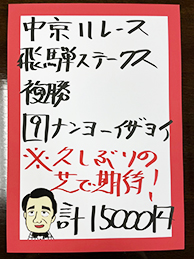 中京11レース
飛騨ステークス
複勝
[9]ナンヨーイザヨイ
※久しぶりの
芝で期待!
計15000円